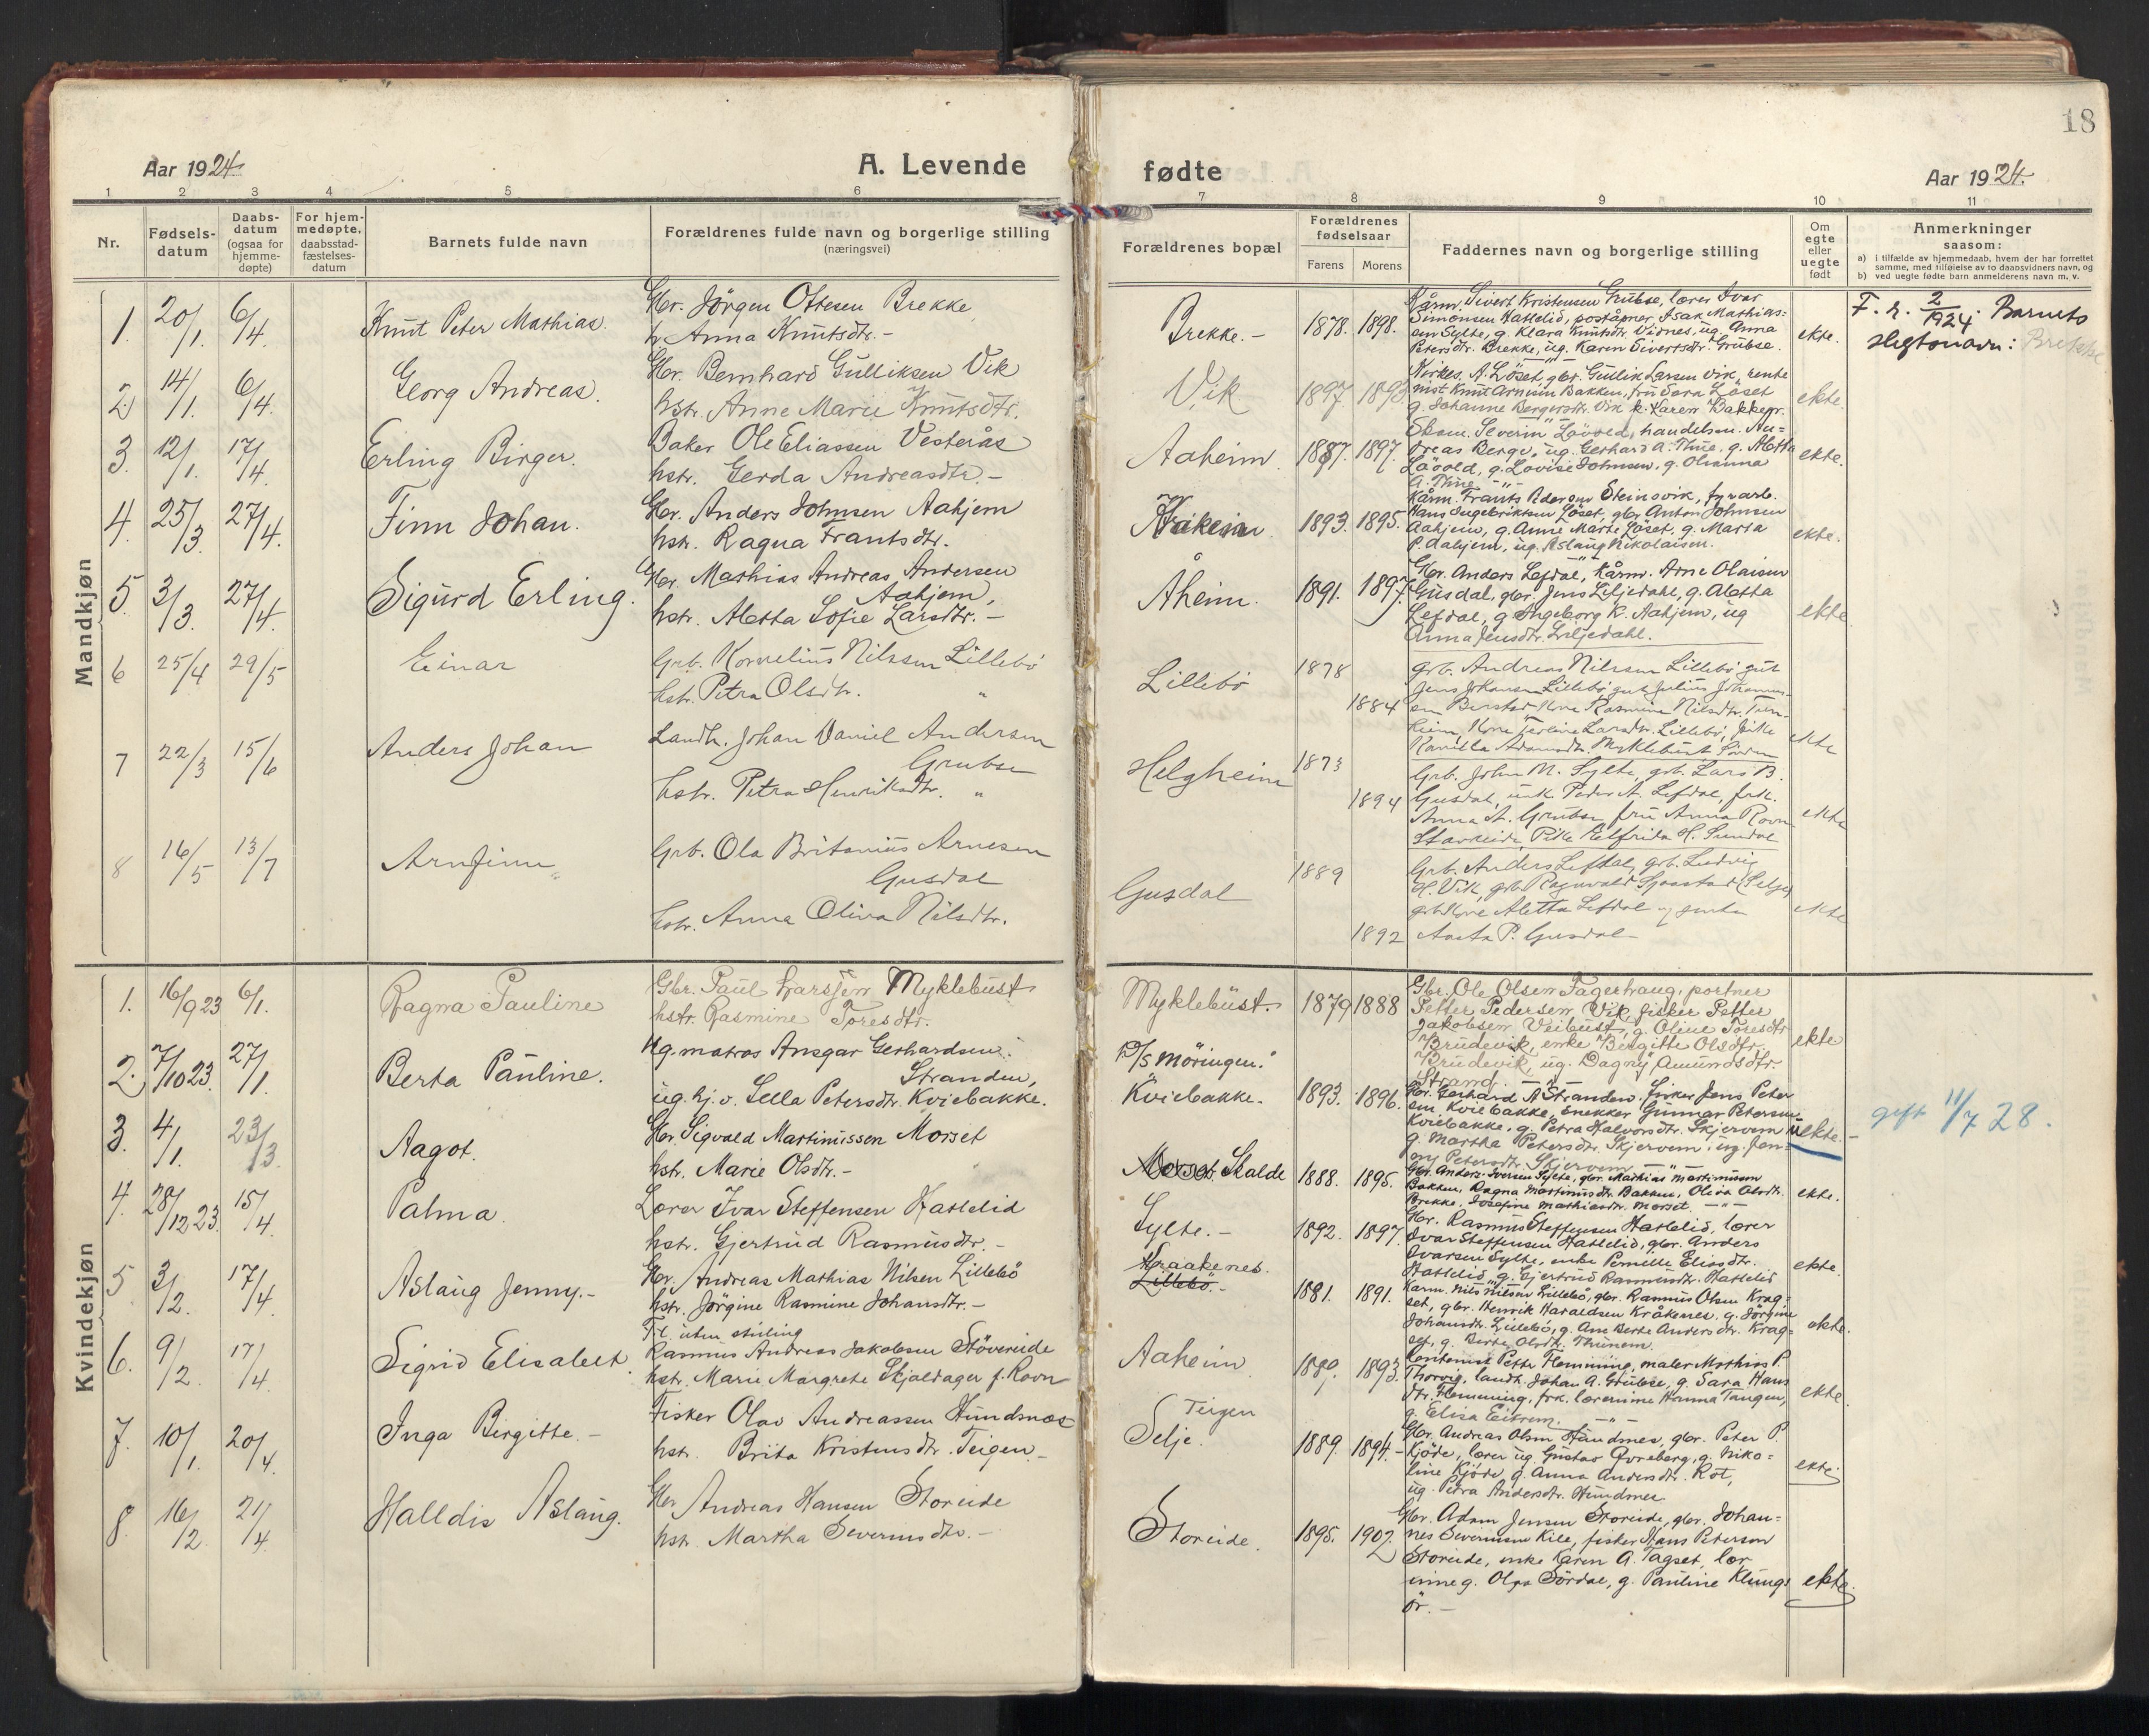 18
Aar 1924.
A. Levende
fødte
Aar 1924.
1 2 3 4 5 6 7 8 9 10 11
Nr.
Fødsels-
datum
Daabs-
datum
(ogsaa for
hjemme-
døpte)
For hjem-
medøpte,
daabsstad-
fæstelses-
datum
Barnets fulde navn
Forældrenes fulde navn og borgerlige stilling
(næringsvei)
Forældrenes bopæl
Forældrenes
fødselsaar
Farens
Morens
Faddernes navn og borgerlige stilling
Om
egte
eller
uegte
født
Anmerkninger
saasom:
a) i tilfælde av hjemmedaab, hvem der har forrettet
samme, med tilføielse av to daabsvidners navn, og
b) ved uegte fødte barn anmelderens navn m. v.
Mandkjøn
1. 20/1. 6/4. Knut Peter Mathias.
Gbr. Jörgen Ottesen Brekke,
h. Anna Knutsdtr. -
Brekke. - 1878. 1898.
Kårm. Sivert Kristensen Grubse, lærer Ivar
Simonsen Hattelid, poståpner Isak Mathias-
sen Sylte, g. Klara Knutsdtr. Vidnes, ug. Anna
Petersdtr. Brekke, ug. Karen Sivertsdtr. Grubse.
ekte.
F. r. 2/1924. Barnets
slegtsnavn: Brekke
2. 14/1. 6/4. Georg Andreas.
Gbr. Bernhard Gulliksen Vik
hstr. Anne Marie Knutsdtr.
Vik 1897 1893
Kirkes. A. Löset, gbr. Gullik Larsen Vik, rente
nist Knut Arnum Bakken, fru Sara Löset
g. Johanne Bergersdtr. Vik k. Karen Bakken.
ekte.
3. 12/1. 17/4. Erling Birger.
Baker Ole Eliassen Vesterås
hstr. Gerda Andreasdtr. -
Aaheim. 1887. 1897.
Ekom. Severin Lövold, handelsm. An=
dreas Berge, ug. Gerhard A. Thue, g. Aletta
Lövold, g. Lovise Johnsen, g. Olianna
A. Thue. -"-
ekte.
4. 25/3. 27/4. Finn Johan.
Gbr. Anders Johnsen Aahjem
hstr. Ragna Frantsdtr.
1893. 1895.
Kårm. Frants Pedersen Steinsvik, fyrarb.
Hans Ingebriktsen Löset, gbr. Anton Johnsen
Aahjem, g. Anne Marte Löset, g. Marta
P. Aahjem, ug. Aslaug Nikolaisen.
ekte.
5 3/3. 27/4. Sigurd Erling.
Gbr. Mathias Andreas Andersen
Aahjem,
hstr. Aletta Sofie Larsdtr. -
Åheim. 1891. 1897.
Gbr. Anders Lefdal, Kårm. Arne Olaisen
Gusdal, gbr. Jens Liljedahl, g. Aletta
Lefdal, g. Ingeborg K. Aahjem, ug
Anna Jensdtr. Liljedahl.
ekte
6 25/4 29/5 Einar
Grb. Kornelius Nilssen Lillebö
hstr. Petra Olsdtr. "
Lillebö 1878
1884
grb. Andreas Nilssen Lillebö gut
Jens Johansen Lillebö gut Julius Johannes-
sen Barstad Kone Rasmine Nilsdtr. Tun-
heim, Kone Larsdtr. Lillebö, pike
Kamilla Adamsdtr. Myklebust
ekte
7 22/3 15/6 Anders Johan
Landh. Johan Daniel Andersen
Grubse
hstr. Petra Henriksdtr. "
Helgheim 1873
1894
Grb. John M. Sylte, grb. Lars B.
Gusdal, unk. Peder A. Lefdal, frk.
Anna A. Grubse fru Anna Rovn
Pike Elfrida H. Sundal
ekte
8 16/5 13/7 Arnfinn
Grb. Ola Britanius Arnesen
Gusdal
hstr. Anna Olina Nilsdtr.
Gusdal 1889
1892
Grb. Anders Lefdal, grb. Ludvig
H. Vik, grb Ragnvald Sjaastad (Selje)
grb Kone Aletta Lefdal og jente
Aasta P. Gusdal -
ekte
Kvindekjøn
1. 16/9 23 6/1. Ragna Pauline
Gbr. Paul Larssen Myklebust
hstr. Rasmine Toresdtr.
Myklebust. 1879 1888
Gbr. Ole Olsen Fagerhaug, portner
Petter Pedersen Vik, fisker Petter
Jakobsen Veibust, g. Oline Toresdtr
Brudevik, enke Birgitte Olsdtr.
Brudevik, ug. Dagny Amundsdtr.
Strand. -"-
ekte
2. 7/10 23. 27/1. Berta Pauline.
Ug. matros Ansgar Gerhardsen
Stranden,
ug. hj. v. Sella Petersdtr. Kviebakke.
D/S Möringen.
Kviebakke. 1893. 1896.
Gbr. Gerhard A Stranden, fisker Jens Peter
sen Kviebakke, snekker Gunnar Petersen
Kviebakke, g. Petra Halvorsdtr. Skjervem
g. Martha Petersdtr. Skjervem, ug. Jen-
ny Petersdtr. Skjervem -"-
uekte. -
gift 11/7 28.
3. 4/1. 23/3. Aagot.
Gbr. Sigvald Martinussen Morset
hstr. Marie Olsdtr. -
Morset. Skalde 1888. 1895.
Gbr. Anders Iversen Sylte, gbr. Mathias Martinussen
Bakken, Ragna Martinusdtr. Bakken, Oliva Olsdtr.
Brekke, Josefine Mathiasdtr. Morset. -"-
ekte.
4. 28/12 23. 15/4. Palma.
Lærer Ivar Steffensen Hattelid
hstr. Gjertrud Rasmusdtr. -
Sylte. - 1892. 1897.
Gbr. Rasmus Steffensen Hattelid, lærer
Ivar Steffensen Hattelid, gbr. Anders
Ivarsen Sylte, enke Pernille Eliasdtr.
Hattelid, g. Gjertrud Rasmusdtr. Hattelid
ekte.
5 3/2. 17/4. Aslaug Jenny. -
Gbr. Andreas Mathias Nilsen Lillebö
hstr. Jörgine Rasmine Johansdtr. -
Kraakenes.
Lillebö. - 1881. 1891.
Kårm. Nils Nilsen Lillebö, gbr. Rasmus Olsen Krag-
set, gbr. Henrik Haraldsen Kråkenes, g. Jörgine
Johansdtr. Lillebö, g. Ane Berte Andersdtr. Krag-
set, g. Berte Olsdtr. Thunem.
ekte.
6. 9/2. 17/4. Sigrid Elisabet.
F. t. uten stilling
Rasmus Andreas Jakobsen Stövereide
hstr. Marie Margrete Skjoldager f. Rovn
Aaheim 1889. 1893.
Kontorist Petter Flemming, maler Mathias P.
Thorvig, landh. Johan A. Grubse, g. Sara Hans
dtr. Flemming, frk. lærerinne Hanna Tangen,
g. Elisa Eikrem. -"-
ekte.
7. 10/1. 20/4. Inga Birgitte. -
Fisker Olav Andreassen Hundsnes
hstr. Brita Kristensdtr. Teigen. -
Teigen
Selje. 1889. 1894. -
Gbr. Andreas Olsen Hundsnes, gbr. Peter P
Kjöde, lærer ug. Gustav Qvreberg, g. Niko=
line Kjöde, g. Anna Andersdtr. Röt,
ug. Petra Andersdtr. Hundsnes
ekte.
8. 16/2. 21/4. Halldis Aslaug.
Gbr. Andreas Hansen Storeide
hstr. Martha Severinsdtr. -
Storeide. 1895. 1902.
Gbr. Adam Jensen Storeide, gbr. Johan=
nes Severinsen Kile, fisker Hans Peterson
Storeide, enke Karen A. Tagset, lær
inne g. Olga Sördal, g. Pauline Klungs
ör. -
ekte.